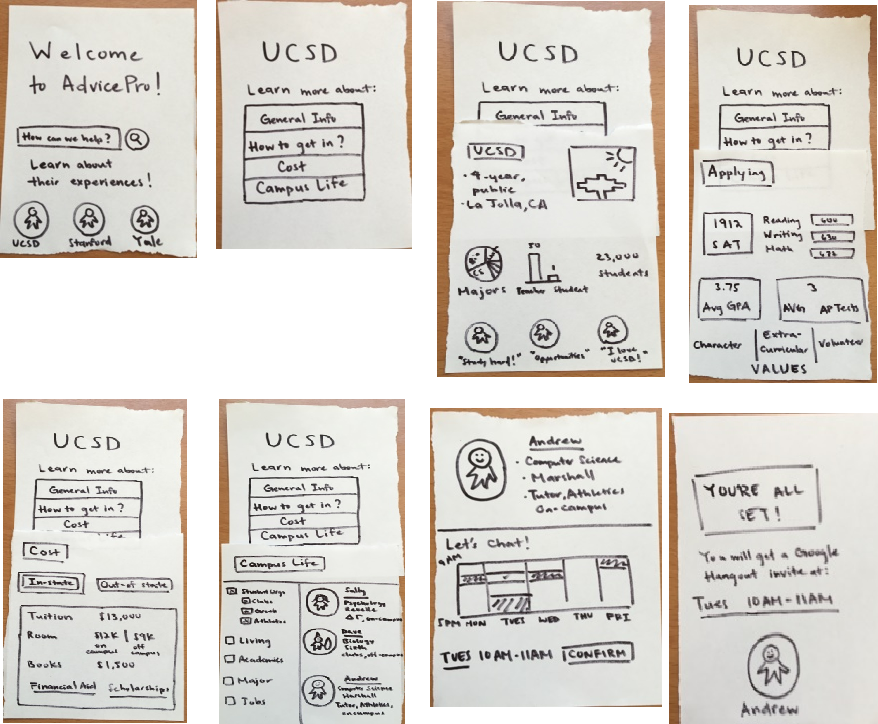 Welcome
to AdvicePro!
How can we help?
Learn about
their experiences!
UCSD Stanford Yale
UCSD
Learn more about:
General Info
How to get in?
Cost
Campus Life
UCSD
Learn more about:
General Info
UCSD
• 4-year,
public
• La Jolla, CA
CS
Majors
Teacher Student
23,000
students
"Study hard!" "Opportunities" "I love
UCSD!"
UCSD
Learn more about:
General Info
How to get in?
Applying
1912
SAT
Reading
Writing 630
Math
3.75
Avg GPA
3
AVG AP Tests
Character
Extra-
Curricular
Volunteer
VALUES
UCSD
Learn more about:
General Info
How to get in?
Cost
Cost
In-state
Out-of state
Tuition $13,000
Room $12K on campus $9K off campus
Books $1,500
Financial Aid Scholarships
UCSD
Learn more about:
General Info
How to get in?
Cost
Campus Life
Campus Life
Student Orgs
Clubs
Greek
Athletics
Living
Academics
Major
Jobs
Sally
Psychology
Revelle
on-campus
Dave
Biology
Sixth
clubs, off-campus
Andrew
Computer Science
Marshall
Tutor, Athletics,
on campus
Andrew
• Computer Science
• Marshall
• Tutor, Athletics
On-campus
Let's Chat!
9AM
5PM MON TUES WED THU FRI
TUES 10AM-11AM CONFIRM
YOU'RE ALL
SET!
You will get a Google
Hangout invite at:
Tues 10AM-11AM
Andrew